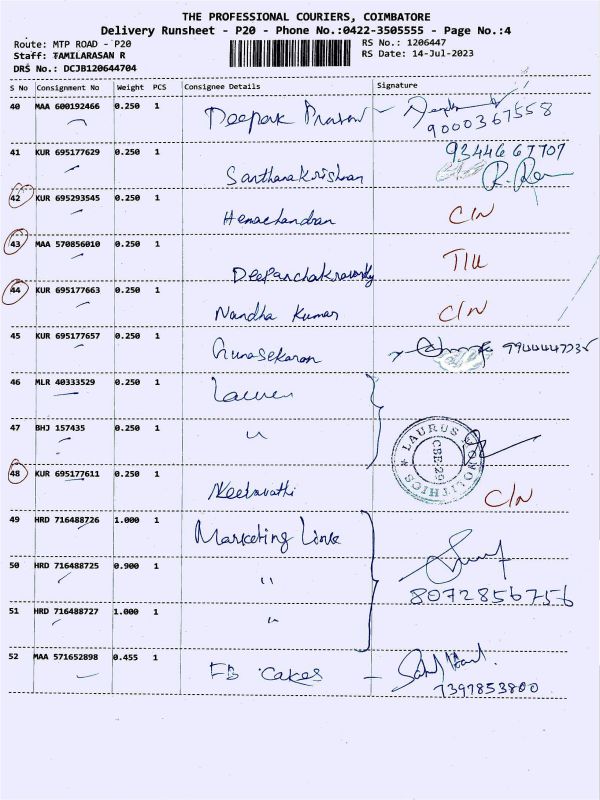 THE PROFESSIONAL COURIERS, COIMBATORE
Delivery Runsheet - P20 - Phone No.:0422-3505555 - Page No.:4
Route: MTP ROAD - P20
RS No.: 1206447
Staff: TAMILARASAN R
RS Date: 14-Jul-2023
DRS No.: DCJB120644704
S No Consignment No Weight PCS Consignee Details Signature
40 MAA 600192466 0.250 1 Deepak Prasan
9000367558
41 KUR 695177629 0.250 1 Santhanakrishnan 9344667707
42 KUR 695293545 0.250 1 Hemachandran C/N
43 MAA 570856010 0.250 1 Deepanchakravarthy
44 KUR 695177663 0.250 1 Nandha Kumar C/N
45 KUR 695177657 0.250 1 Gunasekaran
46 MLR 40333529 0.250 1
47 BHJ 157435 0.250 1 "
LAURUS MONOLITHICS
48 KUR 695177611 0.250 1 C/N
49 HRD 716488726 1.000 1 Marketing Link
50 HRD 716488725 0.900 1 "
8072856756
51 HRD 716488727 1.000 1 "
52 MAA 571652898 0.455 1 FB Cakes
7397853800